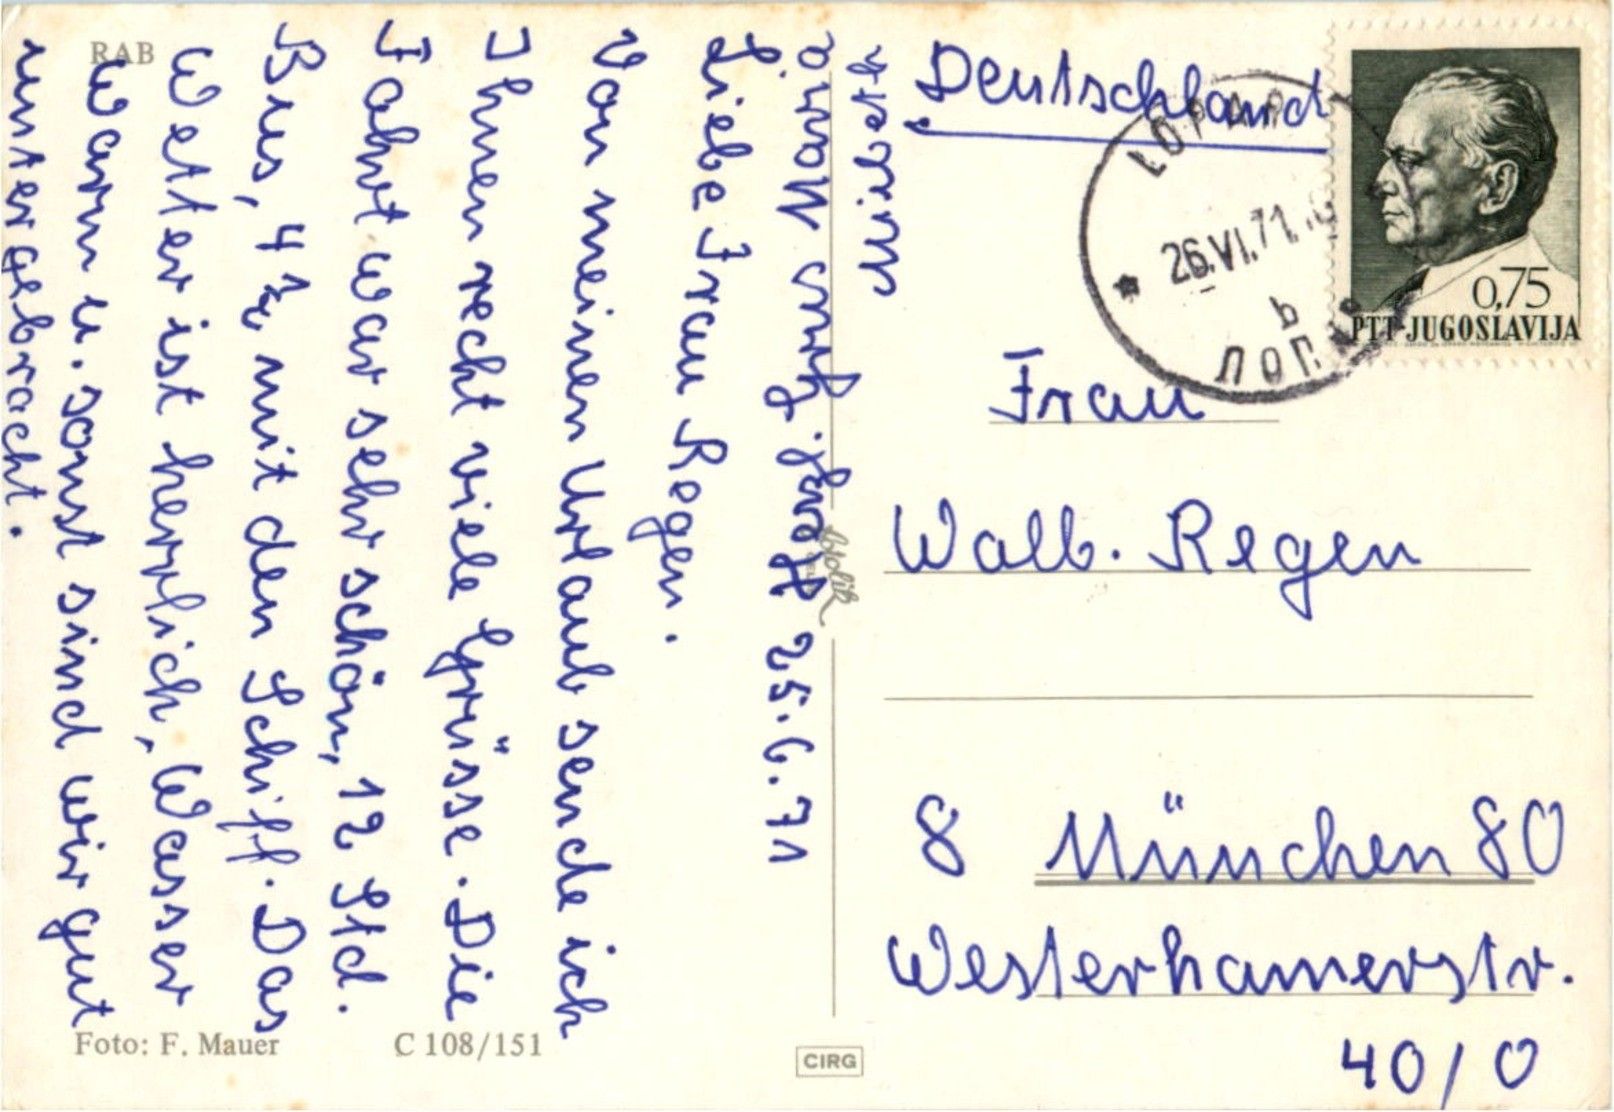 RAB
25.6.71
Liebe Frau Regen.
Von meinen Urlaub sende ich
Ihnen recht viele Grüsse. Die
Fahrt war sehr schön, 12 Std.
Bus, 4 1/2 mit den Schiff. Das
Wetter ist herrlich, Wasser
warm u. sonst sind wir gut
untergebracht.
Foto: F. Mauer
C 108/151
CIRG
Deutschland
LOPAR
26.VI.71
ЛОПАР
0,75
PTT-JUGOSLAVIJA
Frau
Walb. Regen
8 München 80
Westerhamerstr.
40/0